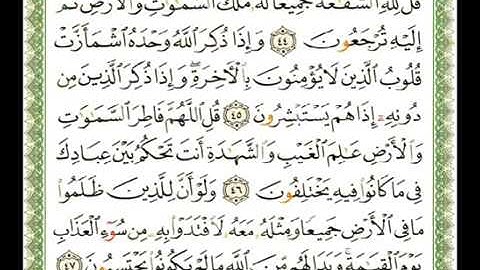 قُل لِّلَّهِ ٱلشَّفَـٰعَةُ جَمِيعًا لَّهُۥ مُلْكُ ٱلسَّمَـٰوَٰتِ وَٱلْأَرْضِ ثُمَّ
إِلَيْهِ تُرْجَعُونَ ٤٤ وَإِذَا ذُكِرَ ٱللَّهُ وَحْدَهُ ٱشْمَأَزَّتْ
قُلُوبُ ٱلَّذِينَ لَا يُؤْمِنُونَ بِٱلْـَٔاخِرَةِ ۖ وَإِذَا ذُكِرَ ٱلَّذِينَ مِن
دُونِهِۦٓ إِذَا هُمْ يَسْتَبْشِرُونَ ٤٥ قُلِ ٱللَّهُمَّ فَاطِرَ ٱلسَّمَـٰوَٰتِ
وَٱلْأَرْضِ عَـٰلِمَ ٱلْغَيْبِ وَٱلشَّهَـٰدَةِ أَنتَ تَحْكُمُ بَيْنَ عِبَادِكَ
فِى مَا كَانُوا۟ فِيهِ يَخْتَلِفُونَ ٤٦ وَلَوْ أَنَّ لِلَّذِينَ ظَلَمُوا۟
مَا فِى ٱلْأَرْضِ جَمِيعًا وَمِثْلَهُۥ مَعَهُۥ لَٱفْتَدَوْا۟ بِهِۦ مِن سُوٓءِ ٱلْعَذَابِ
يَوْمَ ٱلْقِيَـٰمَةِ ۚ وَبَدَا لَهُم مِّنَ ٱللَّهِ مَا لَمْ يَكُونُوا۟ يَحْتَسِبُونَ ٤٧